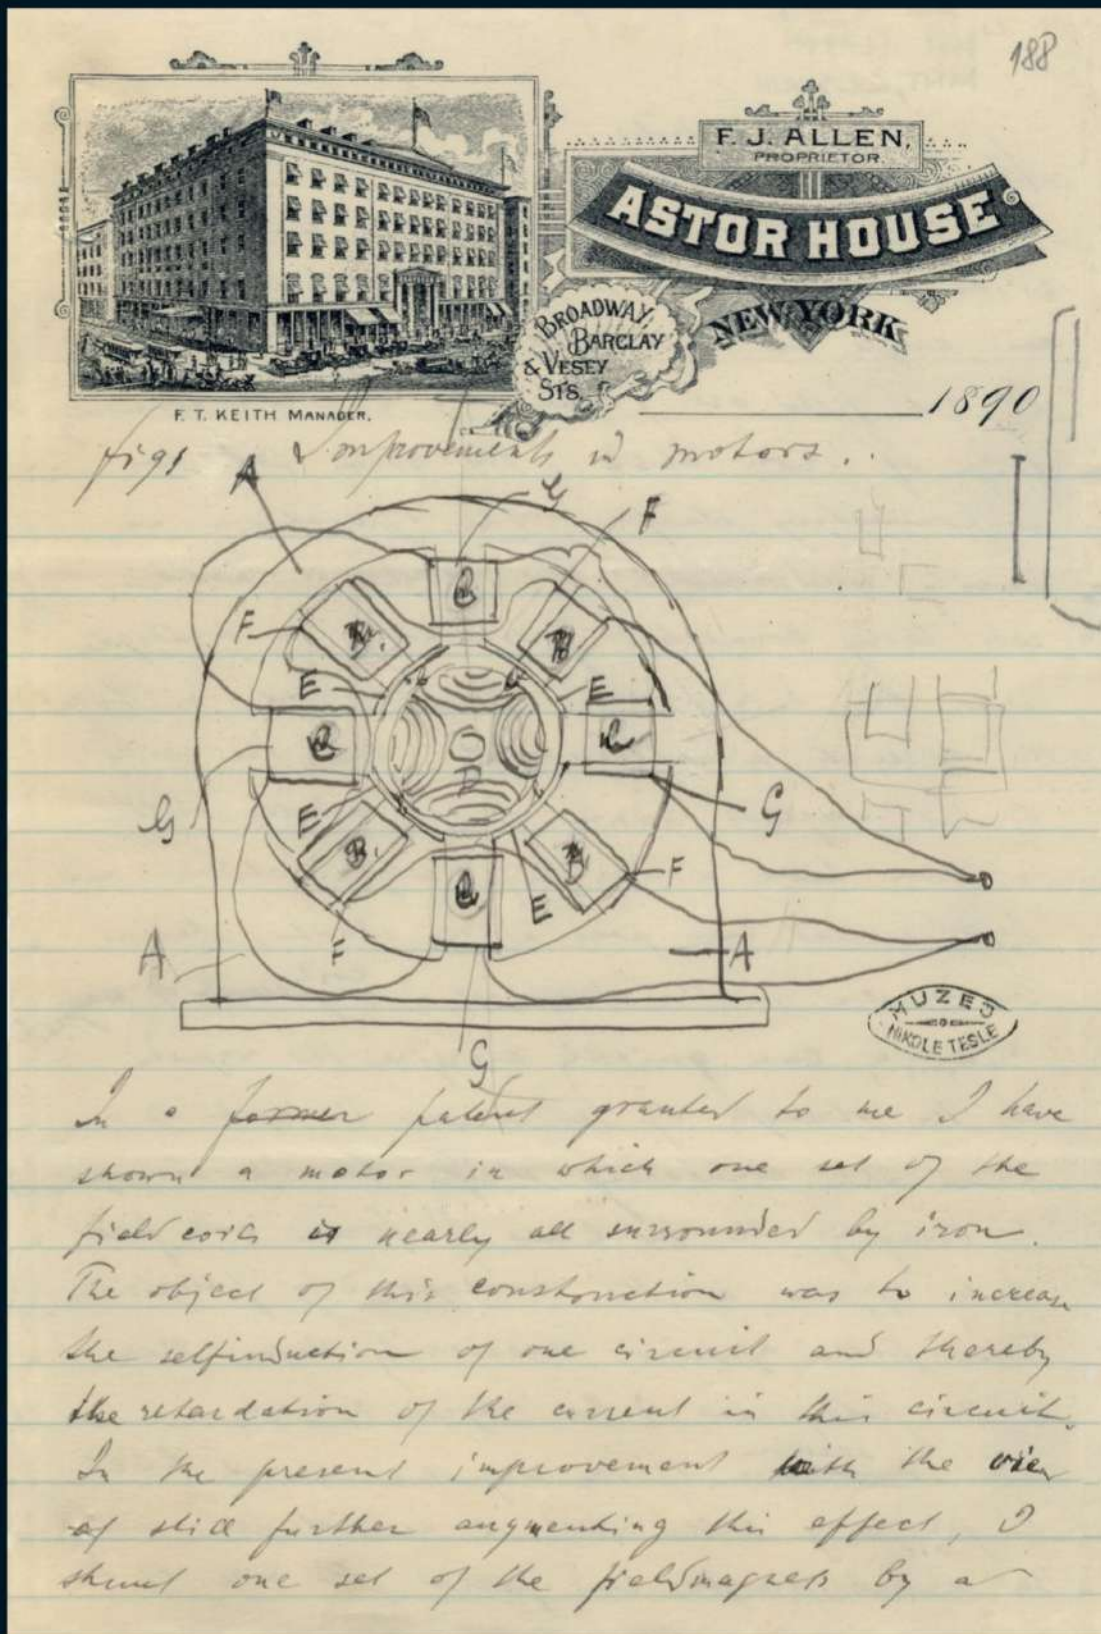 188
F. J. ALLEN,
PROPRIETOR.
ASTOR HOUSE
NEW YORK
BROADWAY,
BARCLAY
& VESEY
STS.
1890
F. T. KEITH MANAGER.
fig 1 Improvements in motors.
A
G
F
F
E
E
G
G
E
E
F
F
A
A
G
B
B
B
B
D
MUZEJ
NIKOLE TESLE
In a former patent granted to me I have
shown a motor in which one set of the
field coils is nearly all surrounded by iron.
The object of this construction was to increase
the selfinduction of one circuit and thereby
the retardation of the current in this circuit.
In the present improvement with the view
of still further augmenting this effect, I
shunt one set of the fieldmagnets by a